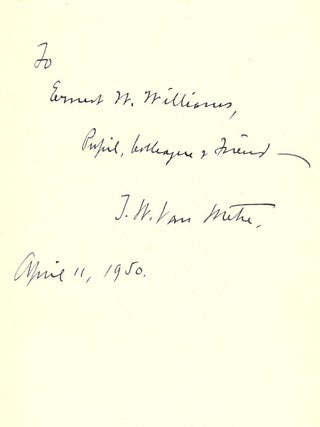 To
Ernest W. Williams,
Pupil, Colleague & Friend —
T. W. Van Metre.
April 11, 1950.